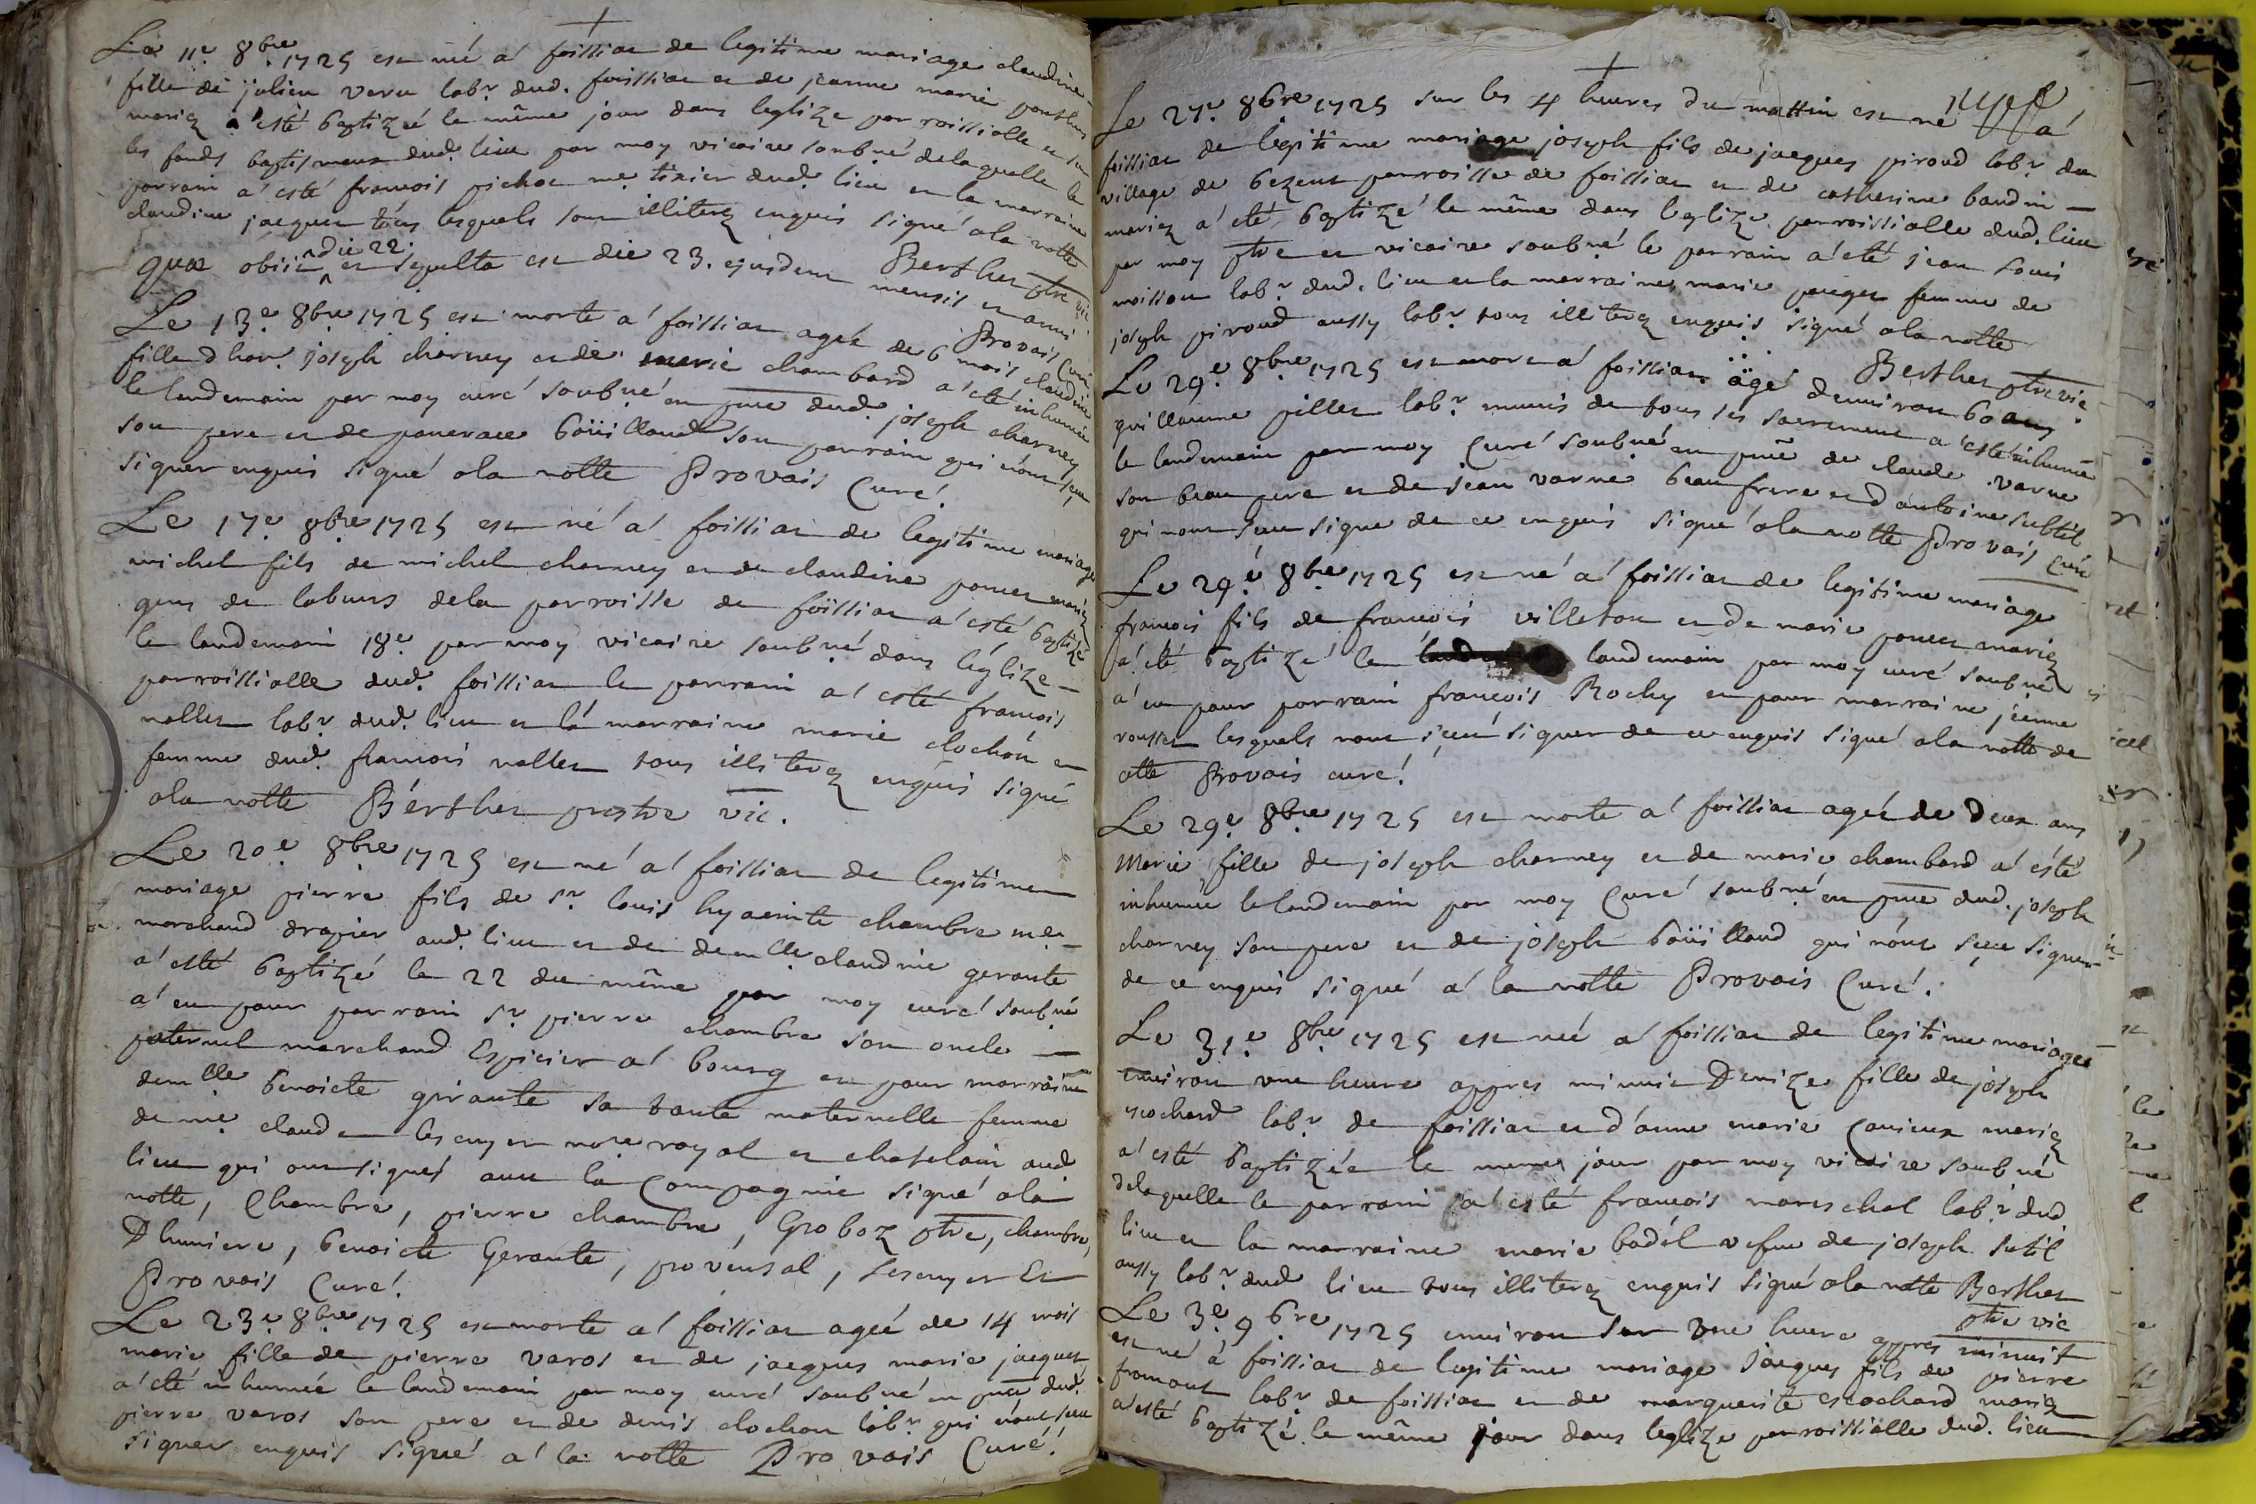 Le 11e 8bre 1725 est né a foissiat de legitime mariage claudine
fille de julien varu labr dud. foissiat et de jeanne marie
mariez a esté baptizeé le même jour dans leglize parroissialle et sur
les fonds baptismaux dud. lieu par moy vicaire soubné delaquelle le
parrain a esté francois pichat me tixier dud. lieu et la marraine
claudine jaequet tous lesquels sont illiterez enquis signé a la notte
Berthet ptre vic.
quae obiit die 22. et sepulta est die 23. ejusdem mensis et anni
Provais Curé
Le 13e 8bre 1725 est morte a foissiat ageé de 6 mois claudine
fille d'hon. joseph charney et de marie chambard a eté inhumée
le landemain par moy curé soubné en pnce dud. joseph charney
son pere et de pancrace boüillaud son parrain qui n'ont sceu
signer enquis signé a la notte Provais Curé.
Le 17e 8bre 1725 est né a foissiat de legitime mariage
michel fils de michel charney et de claudine poncet mariez
gens de labeurs de la parroisse de foissiat a esté baptizé
le landemain 18e par moy vicaire soubné dans l'eglize
parroissialle dud. foissiat le parrain a esté francois
nallet labr dud. lieu et la marraine marie clochon
femme dud. francois nallet tous illiterez enquis signé
a la notte Berthet prestre vic.
Le 20e 8bre 1725 est né a foissiat de legitime
mariage pierre fils de sr louis hyacinte chambre me
marchand drapier aud. lieu et de demlle claudine gerante
a esté baptizé le 22 du même par moy curé soubné
a eu pour parrain sr pierre chambre son oncle
paternel marchand Espicier a bourg et pour marraine
demlle benoicte girante sa tante maternelle femme
de me claude lescuyer nore royal et chatelain aud.
lieu qui ont signés avec la Compagnie signé a la
notte, Chambre, pierre chambre, Groboz ptre, chambre,
Dhumiere, benoicte Gerante, provensal, Lescuyer Et
Provais Curé.
Le 23e 8bre 1725 est morte a foissiat ageé de 14 mois
marie fille de pierre varos et de jaeques marie jaequet
a eté inhumée le landemain par moy curé soubné en pnce dud.
pierre varos son pere et de denis clochon labr qui n'ont sceu
signer enquis signé a la notte Provais Curé.
Le 27e 8bre 1725 sur les 4 heures du mattin est né a
foissiat de legitime mariage joseph fils de jacques piroud labr du
village de bezent parroisse de foissiat et de catherine baudin
mariez a eté baptizé le même dans leglize parroissialle dud. lieu
par moy ptre et vicaire soubné le parrain a eté jean Louis
moisson labr dud. lieu et la marraine marie femme de
joseph piroud aussy labr tous illiterez enquis signé a la notte
Berthet ptre vic.
Le 29e 8bre 1725 est mort a foissiat agé d'environ 60 ans
guillaume pillet labr munis de tous ses sacrement a esté inhumé
le landemain par moy Curé soubné en pnce de claude varne
son beau pere et de jean varne beau frere et d'antoine subtil
qui n'ont sceu signer de ce enquis signé a la notte Provais Curé
Le 29e 8bre 1725 est né a foissiat de legitime mariage
francois fils de francois villeton et de marie poncet mariez
a eté baptizé le landemain par moy curé soubné
a eu pour parrain francois Rochy et pour marraine jeanne
rousset lesquels n'ont sceu signer de ce enquis signé a la notte de
cette Provais curé.
Le 29e 8bre 1725 est morte a foissiat ageé de deux ans
Marie fille de joseph charney et de marie chambard a esté
inhumée le landemain par moy Curé soubné en pnce dud. joseph
charney son pere et de joseph boüillaud qui n'ont sceu signer
de ce enquis signé a la notte Provais Curé.
Le 31e 8bre 1725 est née a foissiat de legitime mariage
environ une heure appres minuit Denize fille de joseph
escochard labr de foissiat et d'anne marie Canieux mariez
a esté baptizée le meme jour par moy vicaire soubné
delaquelle le parrain a esté francois mareschal labr dud.
lieu et la marraine marie badél vefue de joseph subtil
aussy labr dud. lieu tous illiterez enquis signé a la notte Berthet
ptre vic
Le 3e 9bre 1725 environ sur une heure appres minuit
est né a foissiat de legitime mariage Jacques fils de pierre
fromont labr de foissiat et de marguerite escochard mariez
a esté baptizé le même jour dans leglize parroissialle dud. lieu